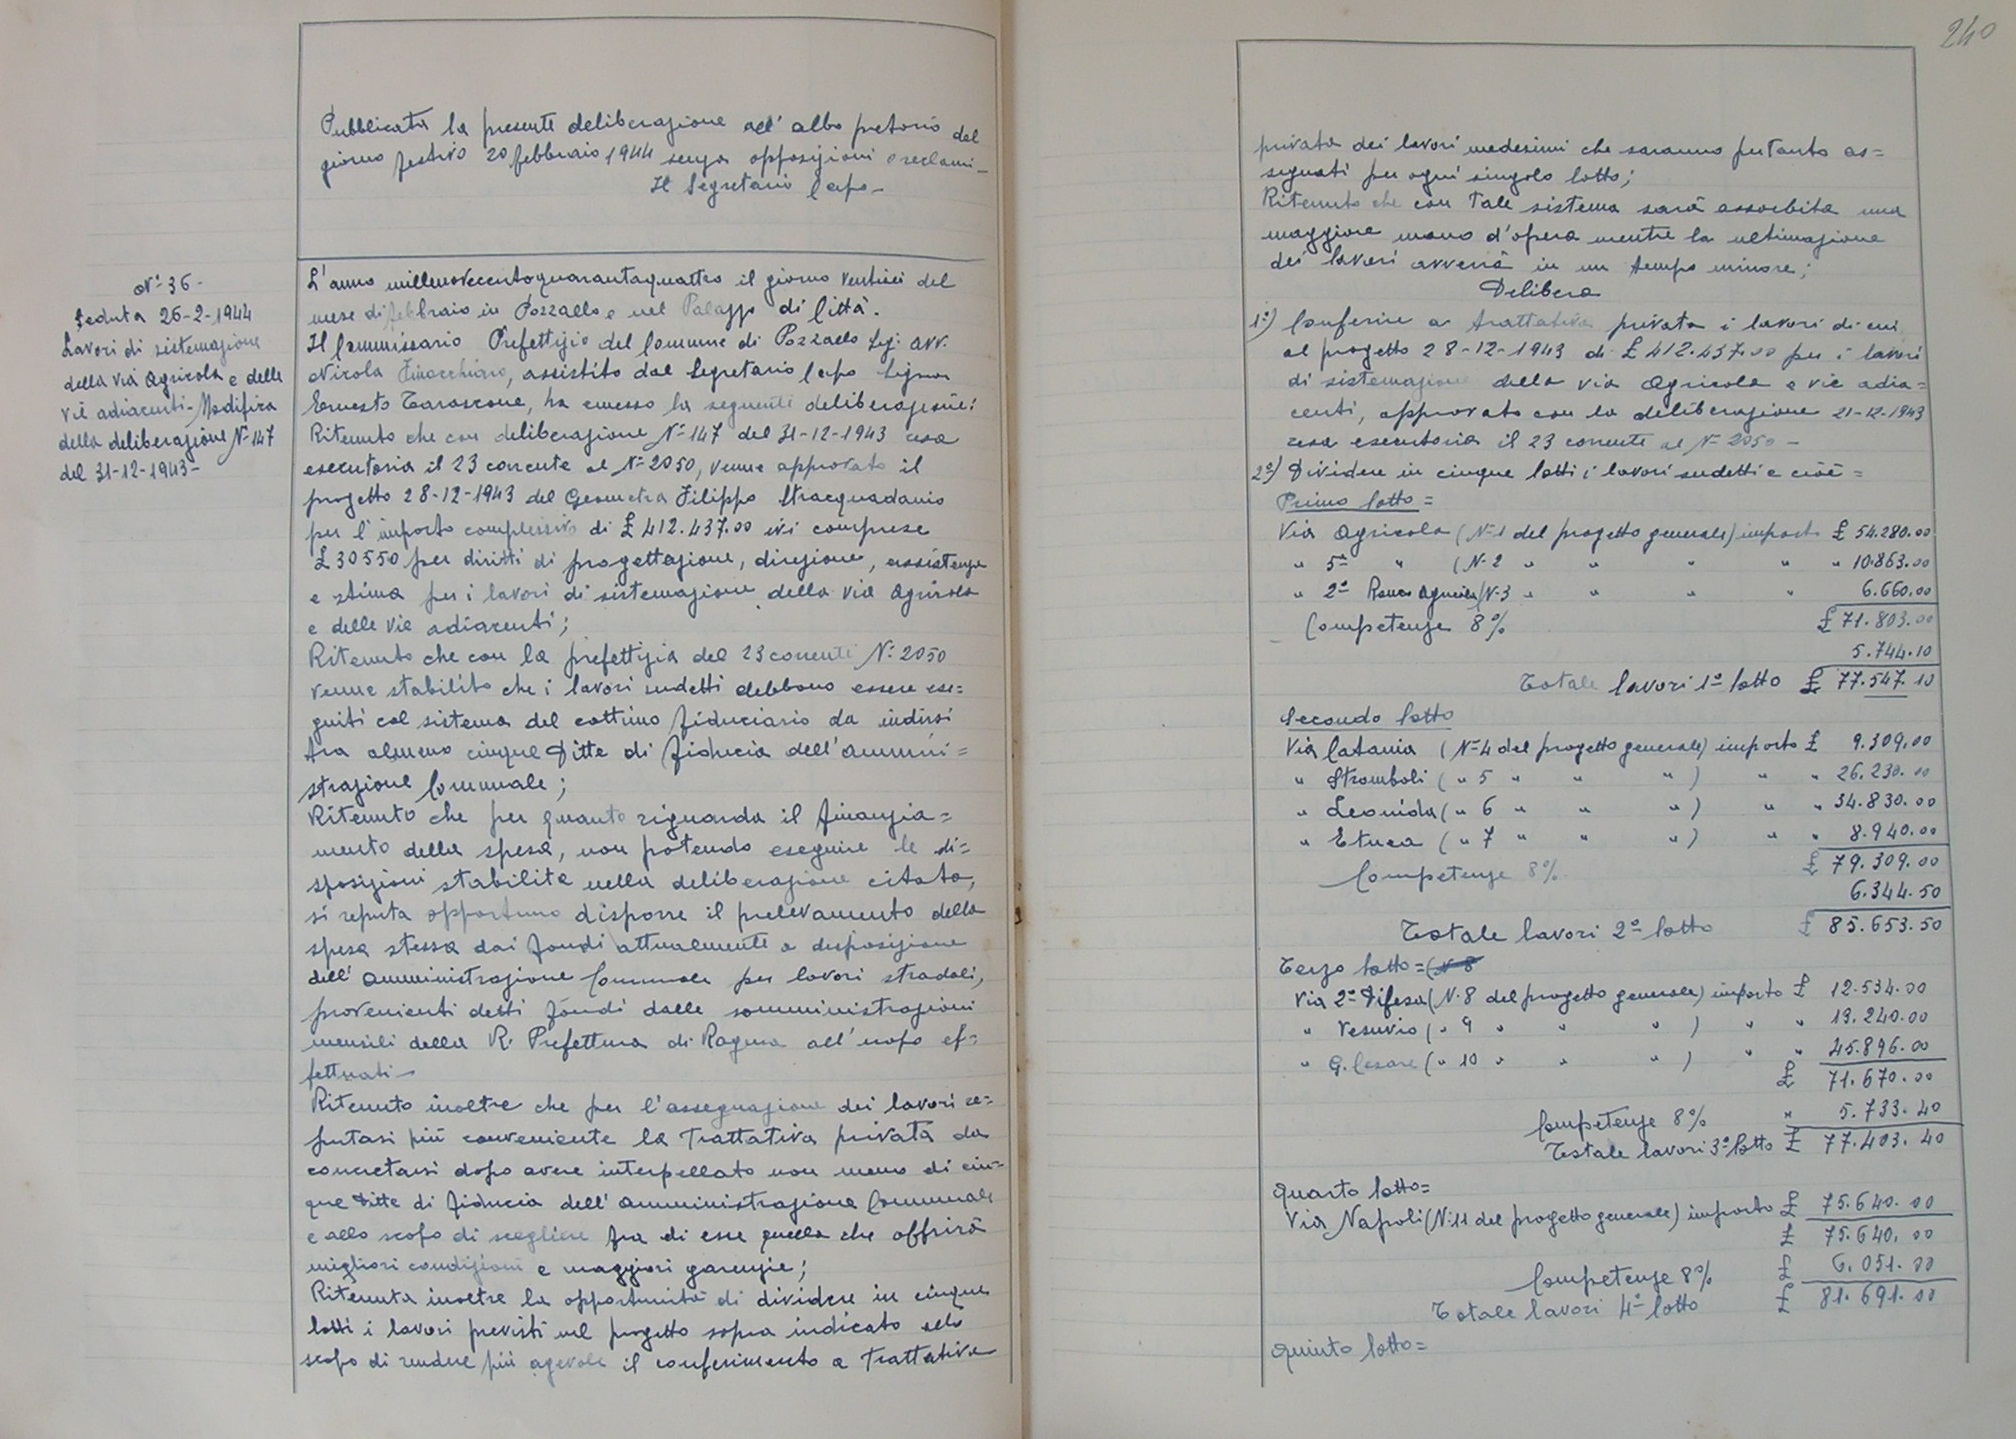 Pubblicata la presente deliberazione all'albo pretorio del
giorno festivo 20 febbraio 1944 senza opposizioni o reclami_
Il Segretario Capo_
N° 36-
Seduta 26-2-1944
Lavori di sistemazione
della via Agricola e delle
vie adiacenti-Modifica
della deliberazione N° 147
del 31-12-1943-
L'anno millenovecentoquarantaquattro il giorno ventisei del
mese di febbraio in Pozzallo e nel Palazzo di Città.
Il Commissario Prefettizio del Comune di Pozzallo Sig. Avv.
Nicola Finocchiaro, assistito dal Segretario Capo Signor
Ernesto Tarascone, ha emesso la seguente deliberazione:
Ritenuto che con deliberazione N° 147 del 31-12-1943 resa
esecutoria il 23 corrente al N° 2050, venne approvato il
progetto 28-12-1943 del Geometra Filippo Stracquadanio
per l'importo complessivo di £ 412.437.00 ivi comprese
£ 30550 per diritti di progettazione, direzione, assistenza
e stima per i lavori di sistemazione della via Agricola
e delle vie adiacenti;
Ritenuto che con la prefettizia del 23 corrente N° 2050
venne stabilito che i lavori sudetti debbono essere ese=
guiti col sistema del cottimo fiduciario da indirsi
tra almeno cinque Ditte di fiducia dell'Ammini=
strazione Comunale;
Ritenuto che per quanto riguarda il finanzia=
mento della spesa, non potendo eseguire le di=
sposizioni stabilite nella deliberazione citata,
si reputa opportuno disporre il prelevamento della
spesa stessa dai fondi attualmente a disposizione
dell'Amministrazione Comunale per lavori stradali,
provenienti detti fondi dalle somministrazioni
mensili della R. Prefettura di Ragusa all'uopo ef=
fettuati-
Ritenuto inoltre che per l'assegnazione dei lavori re=
putasi più conveniente la trattativa privata da
concretarsi dopo avere interpellato non meno di cin=
que Ditte di fiducia dell'Amministrazione Comunale
e allo scopo di scegliere fra di esse quella che offrirà
migliori condizioni e maggiori garenzie;
Ritenuta inoltre la opportunità di dividere in cinque
lotti i lavori previsti nel progetto sopra indicato allo
scopo di rendere più agevole il conferimento a trattativa
240
privata dei lavori medesimi che saranno pertanto as=
segnati per ogni singolo lotto;
Ritenuto che con tale sistema sarà assorbita una
maggiore mano d'opera mentre la ultimazione
dei lavori avverrà in un tempo minore;
Delibera
1°) Conferire a trattativa privata i lavori di cui
al progetto 28-12-1943 di £ 412.437.00 per i lavori
di sistemazione della via Agricola e vie adia=
centi, approvato con la deliberazione 21-12-1943
resa esecutoria il 23 corrente al N° 2050-
2°) Dividere in cinque lotti i lavori sudetti e cioè=
Primo lotto=
Via Agricola (N°1 del progetto generale) importo £ 54.280.00
" 5ª " (N°2 " " " " " 10.863.00
" 2ª Ronco Agricola (N°3 " " " " 6.660.00
Competenze 8% £ 71.803.00
5.744.10
Totale lavori 1° lotto £ 77.547.10
Secondo lotto
Via Catania (N°4 del progetto generale) importo £ 9.309.00
" Stromboli ( " 5 " " " ) " " 26.230.00
" Leonida ( " 6 " " " ) " " 34.830.00
" Etnea ( " 7 " " " ) " " 8.940.00
£ 79.309.00
Competenze 8%
6.344.50
Totale lavori 2° lotto £ 85.653.50
Terzo lotto=(N° 8
Via 2ª Difesa (N° 8 del progetto generale) importo £ 12.534.00
" Vesuvio ( " 9 " " " ) " " 13.240.00
" G. Cesare ( " 10 " " " ) " " 45.896.00
£ 71.670.00
Competenze 8% " 5.733.40
Totale lavori 3° lotto £ 77.403.40
Quarto lotto=
Via Napoli (N°11 del progetto generale) importo £ 75.640.00
£ 75.640.00
Competenze 8% £ 6.051.00
Totale lavori 4° lotto £ 81.691.00
Quinto lotto=